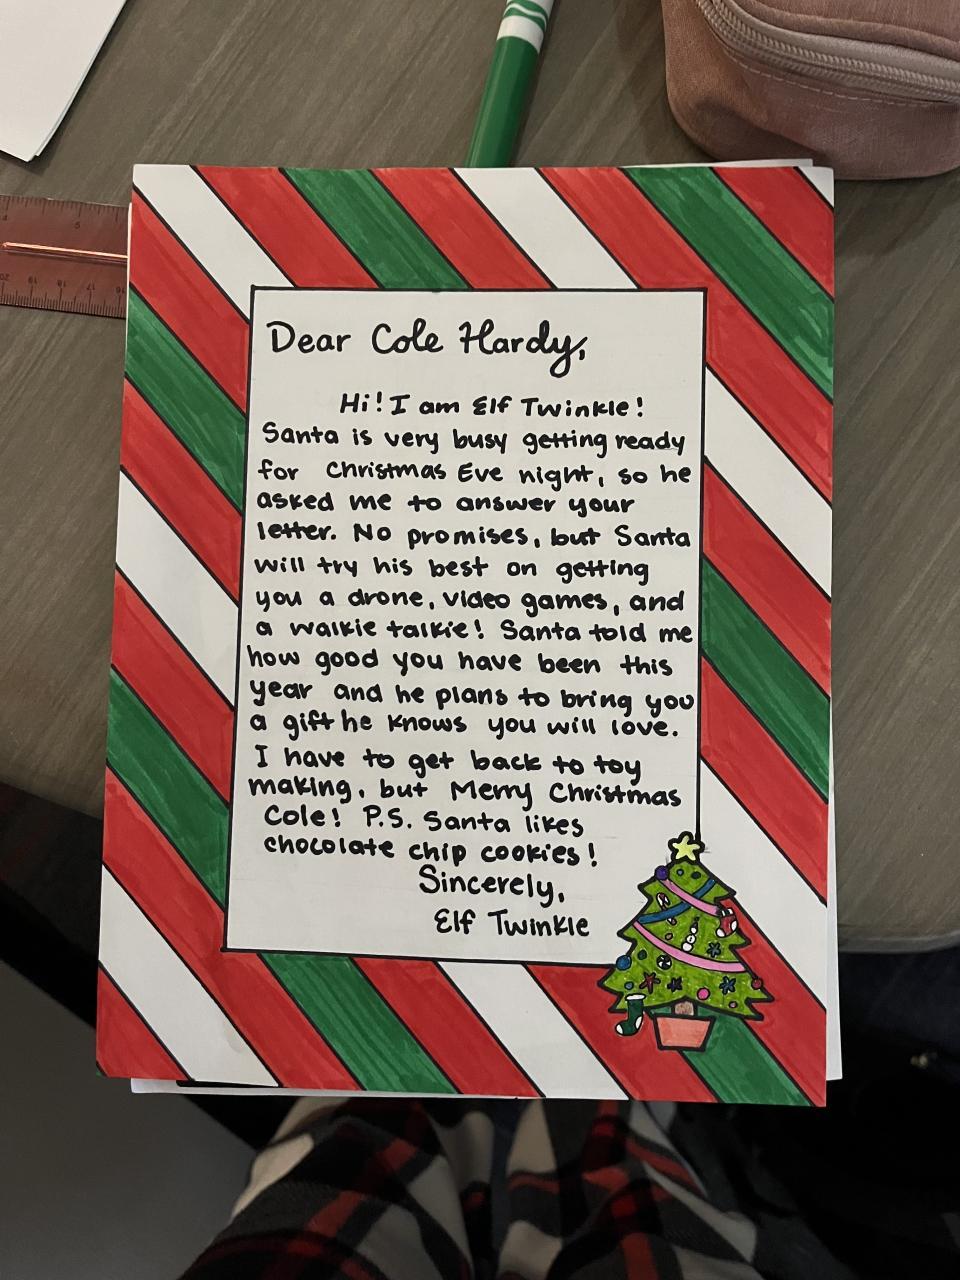 Dear Cole Hardy,
Hi! I am Elf Twinkle!
Santa is very busy getting ready
for Christmas Eve night, so he
asked me to answer your
letter. No promises, but Santa
will try his best on getting
you a drone, video games, and
a walkie talkie! Santa told me
how good you have been this
year and he plans to bring you
a gift he knows you will love.
I have to get back to toy
making, but Merry Christmas
Cole! P.S. Santa likes
chocolate chip cookies!
Sincerely,
Elf Twinkle